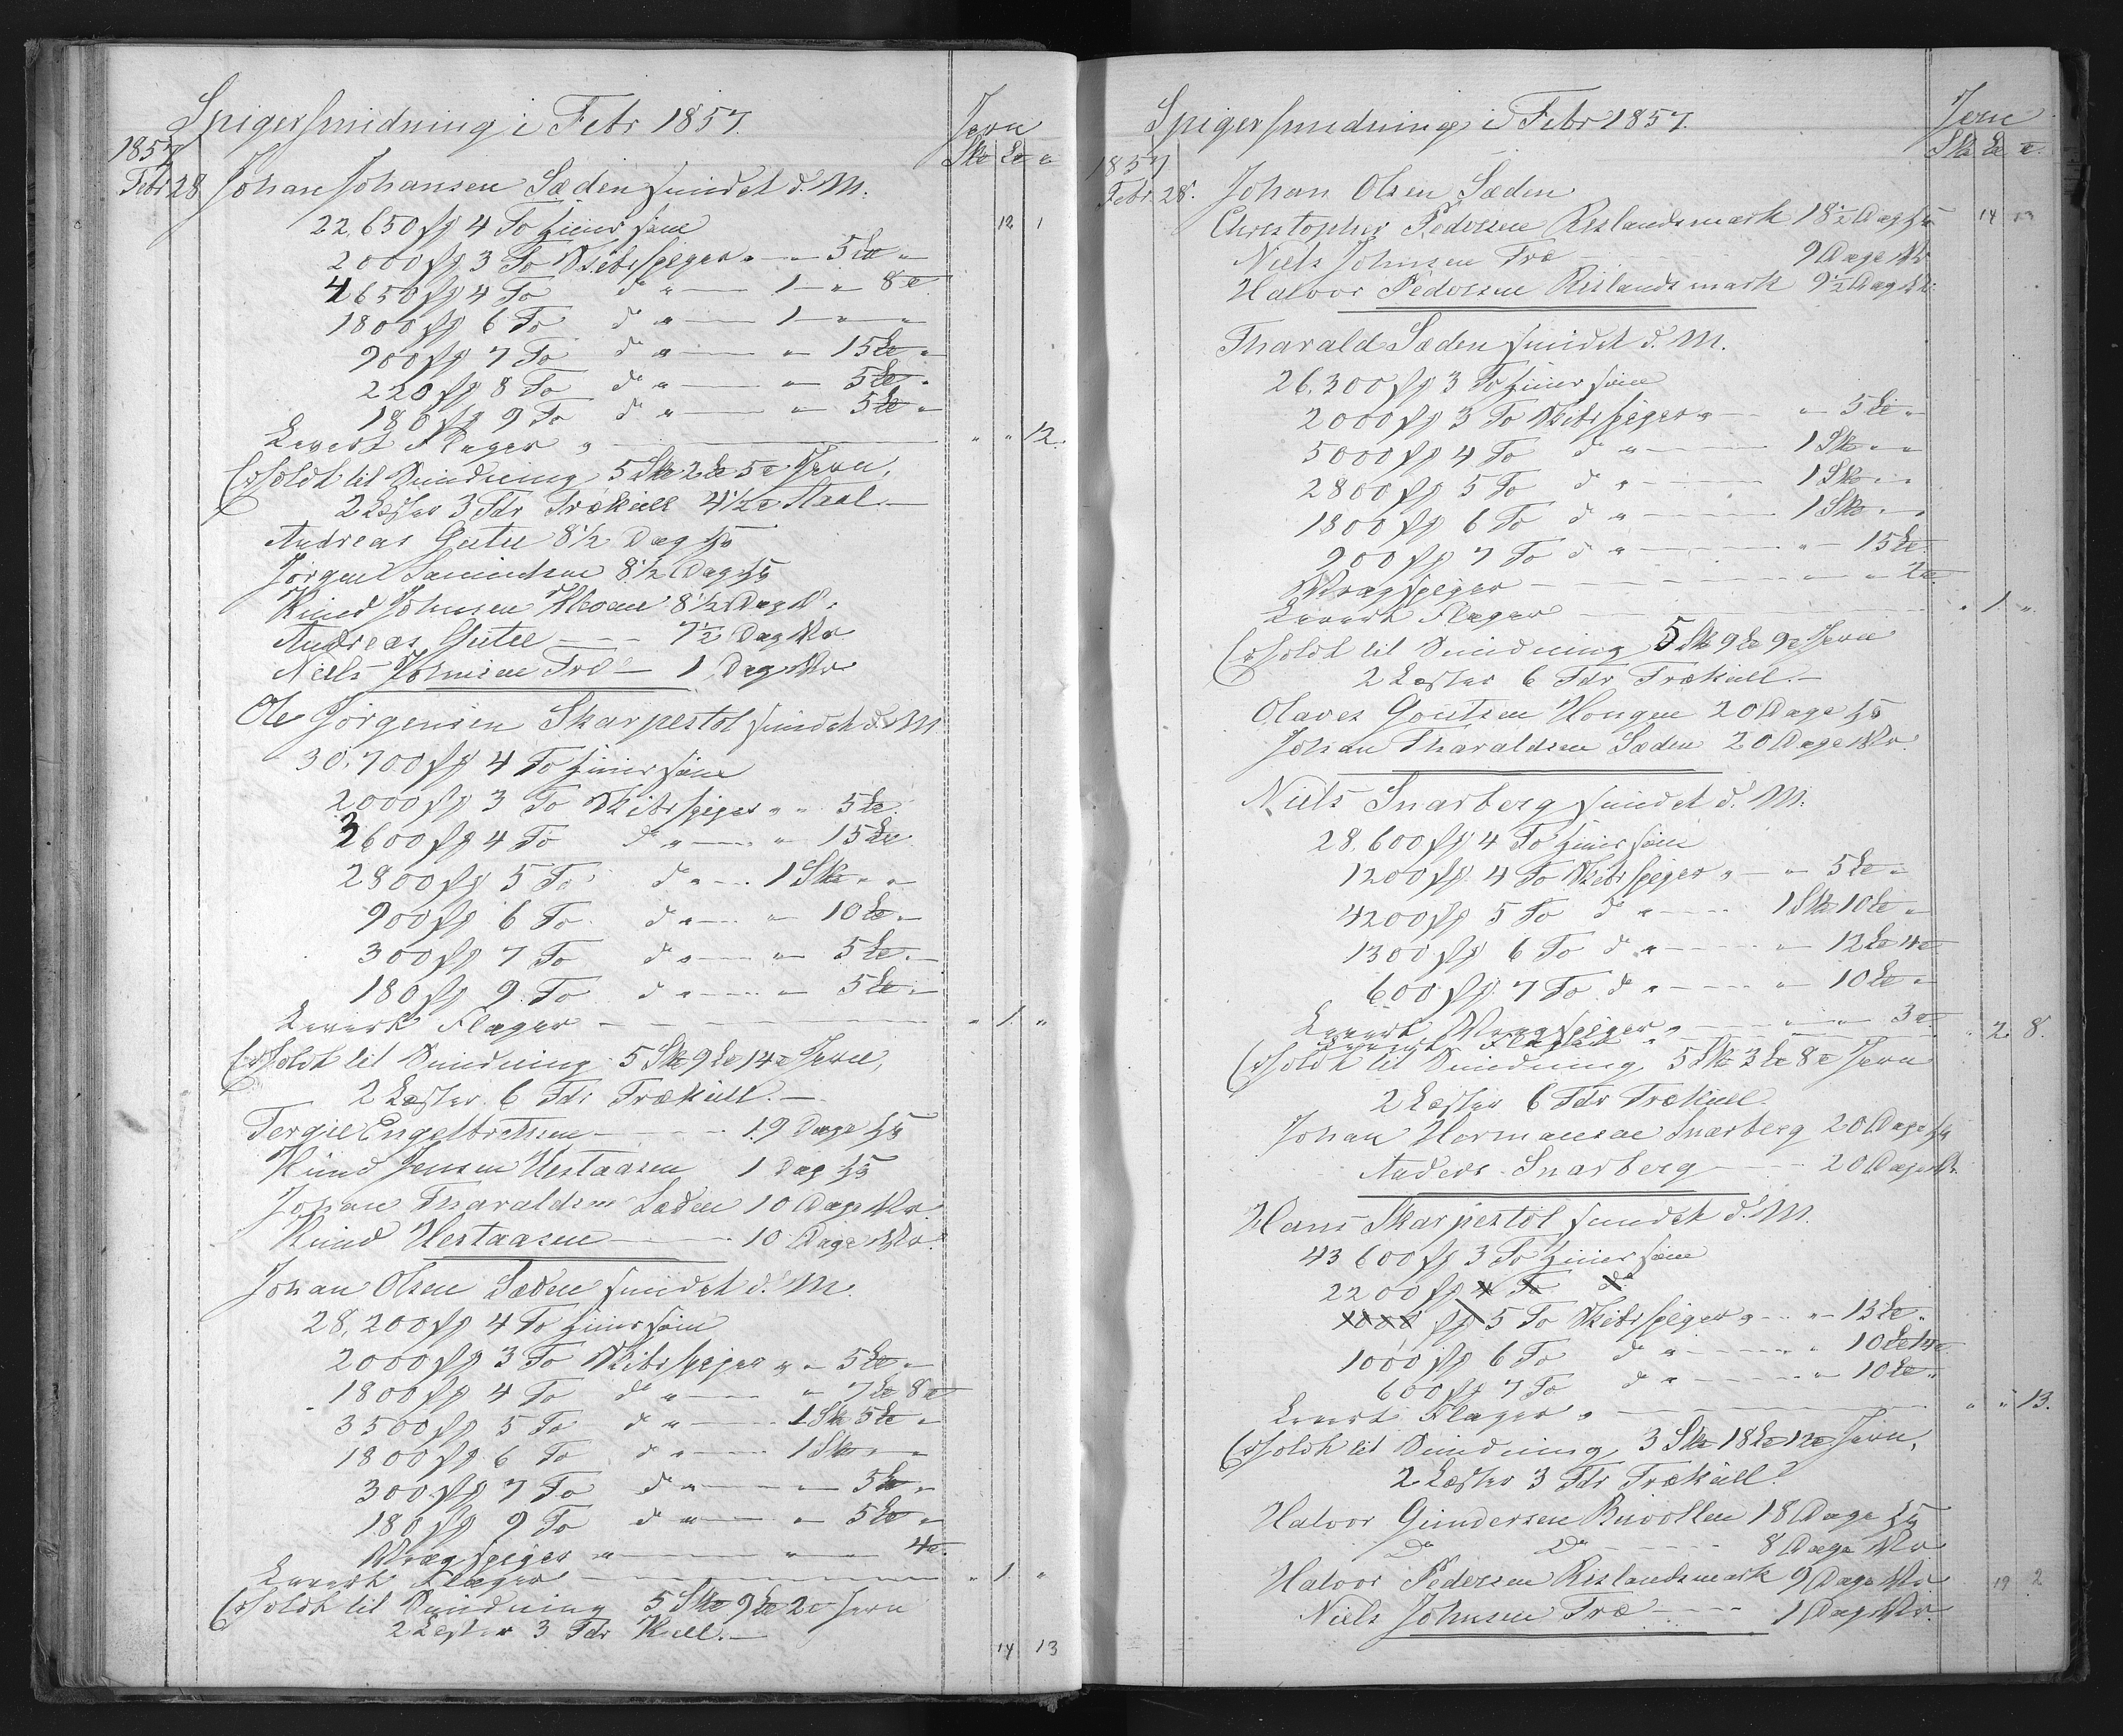 Spigersmidning i Febr 1857.
Jern
1857 Sk℔ L℔ ℔
Febr 28 Johan Johansen Sæden smidet d. M.
22,650 st 4 To fiinersøm 12 1
2000 st 3 To Skibsspiger " — " 5 L℔ "
4650 st 4 To do " — 1 — " 8 ℔
1800 st 6 To do " — 1 — " — "
900 st 7 To do " — " 15 L℔ "
220 st 8 To do " — " 5 L℔ "
180 st 9 To do " — " 5 L℔ "
Levert Flager " — " " 12.
Erholdt til Smidning 5 Sk℔ 2 L℔ 5 ℔ Jern,
2 Lester 3 Tdr Trækull 4 1/2 ℔ Staal. —
Andreas Gutte 8 1/2 Dag
Jörgen 8 1/2 Dag
Knud Johnsen 8 1/2 Dag
Andreas Gutte — 7 1/2 Dag
Niels Johnsen Træ — 1 Dag
Ole Jörgensen Skarpestöl smidet d. M.
30,700 st 4 To fiinersøm
2000 st 3 To Skibsspiger " " 5 L℔
3600 st 4 To do " — " 15 L℔
2800 st 5 To do " — 1 Sk℔ " "
900 st 6 To do " — " 10 L℔ "
300 st 7 To do " — " 5 L℔ "
180 st 9 To do " — " 5 L℔ "
Levert Flager — " 1. "
Erholdt til Smidning 5 Sk℔ 9 L℔ 14 ℔ Jern,
2 Lester 6 Tdr Trækull. —
Tergie Engelbretsen — 19 Dage
Knud Jensen Hestaasen 1 Dag
Johan Tharaldsen Sæden 10 Dage
Knud Hestaasen — 10 Dage
Johan Olsen Sæden smidet d. M.
28,200 st 4 To fiinersøm
2000 st 3 To Skibsspiger " " 5 L℔ "
1800 st 4 To do " — " 7 L℔ 8 ℔
3500 st 5 To do " — 1 Sk℔ 5 L℔ "
1800 st 6 To do " — 1 Sk℔ " "
300 st 7 To do " — " 5 L℔ "
180 st 9 To do " — " 5 L℔ "
Vragspiger " — " " 4 ℔.
Levert Flager — " 1. "
Erholdt til Smidning 5 Sk℔ 9 L℔ 2 ℔ Jern
2 Lester 3 Tdr Kull. —
14 13
Spigersmidning i Febr 1857.
Jern
1857 Sk℔ L℔ ℔.
Febr. 28. Johan Olsen Sæden
Christopher Pedersen Rislandsmark 18 1/2 Dag 14 13
Niels Johnsen Træ — 9 Dage
Halvor Pedersen Rislandsmark 9 1/2 Dag
Tharald Sæden smidet d. M.
26,300 st 3 To fiinersøm
2000 st 3 To Skibsspiger " — " 5 L℔ "
5000 st 4 To do " — 1 Sk℔ " "
2800 st 5 To do " — 1 Sk℔ " "
1800 st 6 To do " — 1 Sk℔ " "
900 st 7 To do " — " 15 L℔
Vragspiger — " " 2 ℔.
Levert Flager — " 1 ".
Erholdt til Smidning 5 Sk℔ 9 L℔ 9 ℔ Jern
2 Lester 6 Tdr Trækull. —
Olaves Goutsen Hougen 20 Dage
Johan Tharaldsen Sæden 20 Dage
Niels Snarberg smidet d. M.
28,600 st 4 To fiinersøm
1200 st 4 To Skibsspiger " — " 5 L℔ "
4200 st 5 To do " — 1 Sk℔ 10 L℔ "
1300 st 6 To do " — " 12 L℔ 4 ℔
600 st 7 To do " — " 10 L℔ "
Levert Vragspiger " — " " 3 ℔.
Levert Flager " " 2 8.
Erholdt til Smidning 5 Sk℔ 3 L℔ 8 ℔ Jern
2 Lester 6 Tdr Trækull
Johan Hermansen Snarberg 20 Dage
Anders Snarberg — 20 Dage
Hans Skarpestöl smidet d. M.
43 600 st 3 To fiinersøm
2200 st 4 To do
1000 st 5 To Skibsspiger " — " 13 L℔ "
1000 st 6 To do " — " 10 L℔ 14 ℔
600 st 7 To do " — " 10 L℔ "
Levert Flager " — " " 13.
Erholdt til Smidning 3 Sk℔ 18 L℔ 12 ℔ Jern,
2 Lester 3 Tdr Trækull
Halvor Gundersen 18 Dage
Do Do — 8 Dage
Halvor Pedersen Rislandsmark 9 Dage 19 2
Niels Johnsen Træ — 1 Dag